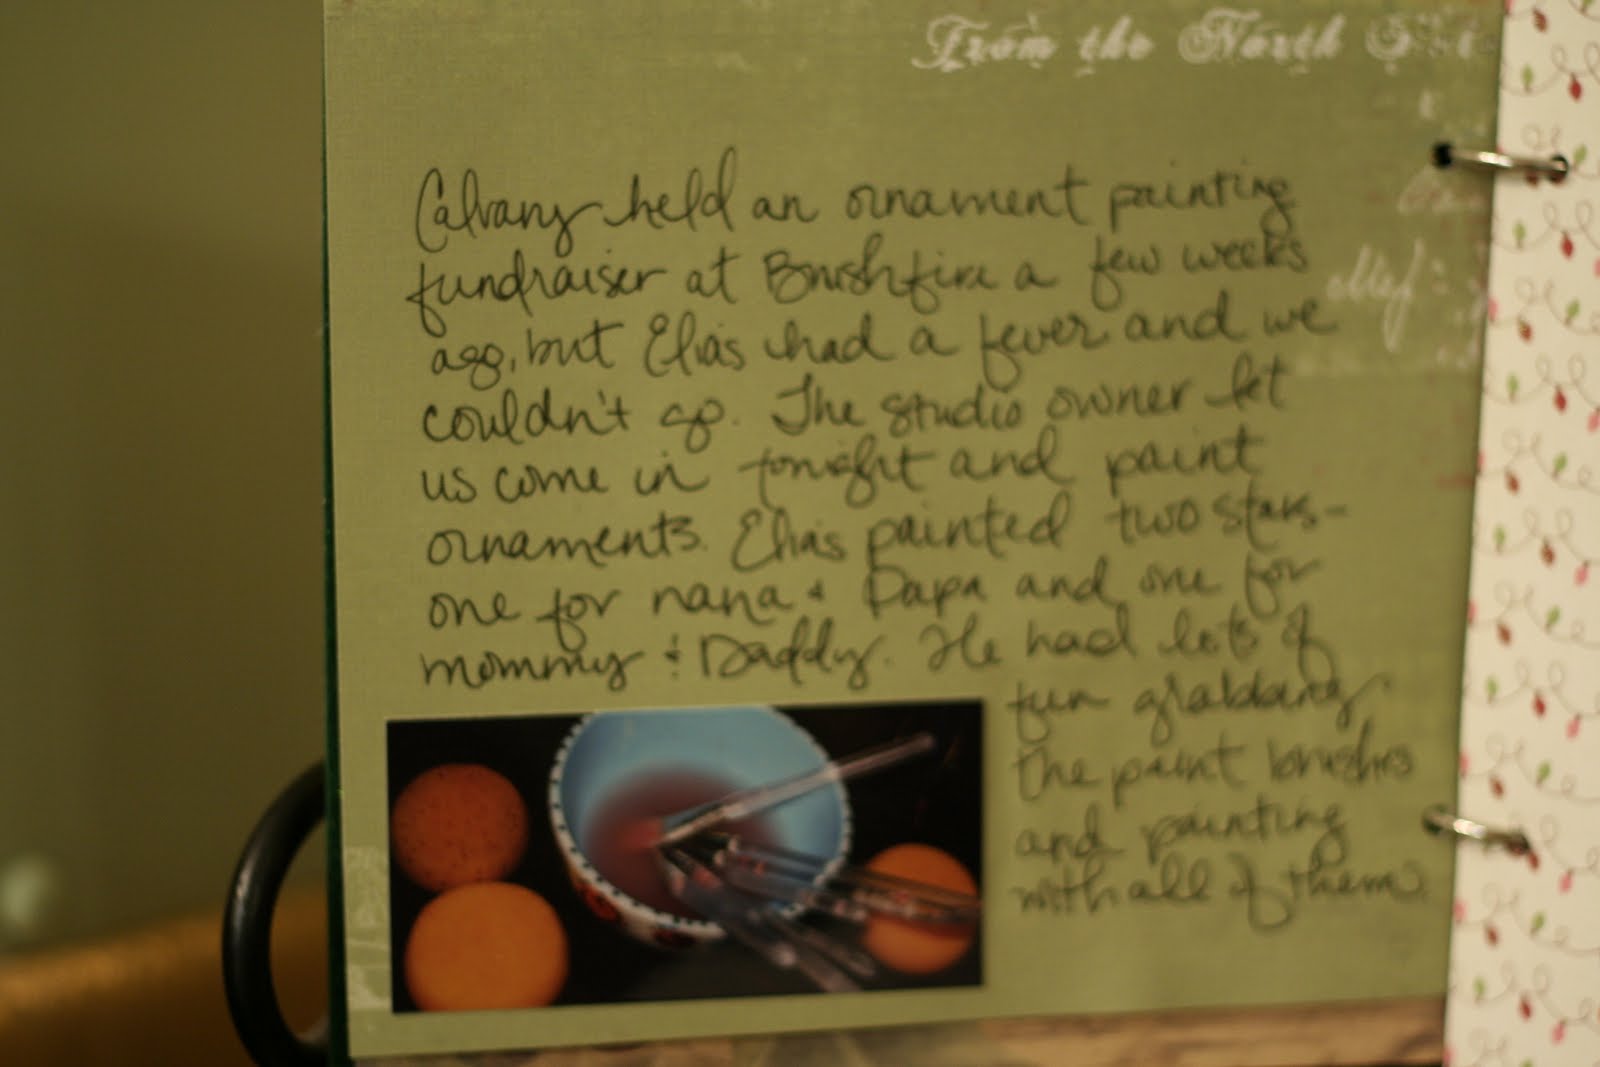 From the North
Calvary held an ornament painting
fundraiser at Brushfire a few weeks
ago, but Elias had a fever and we
couldn't go. The studio owner let
us come in tonight and paint
ornaments. Elias painted two stars-
one for nana & Papa and one for
mommy & Daddy. He had lots of
fun grabbing
the paint brushes
and painting
with all of them.